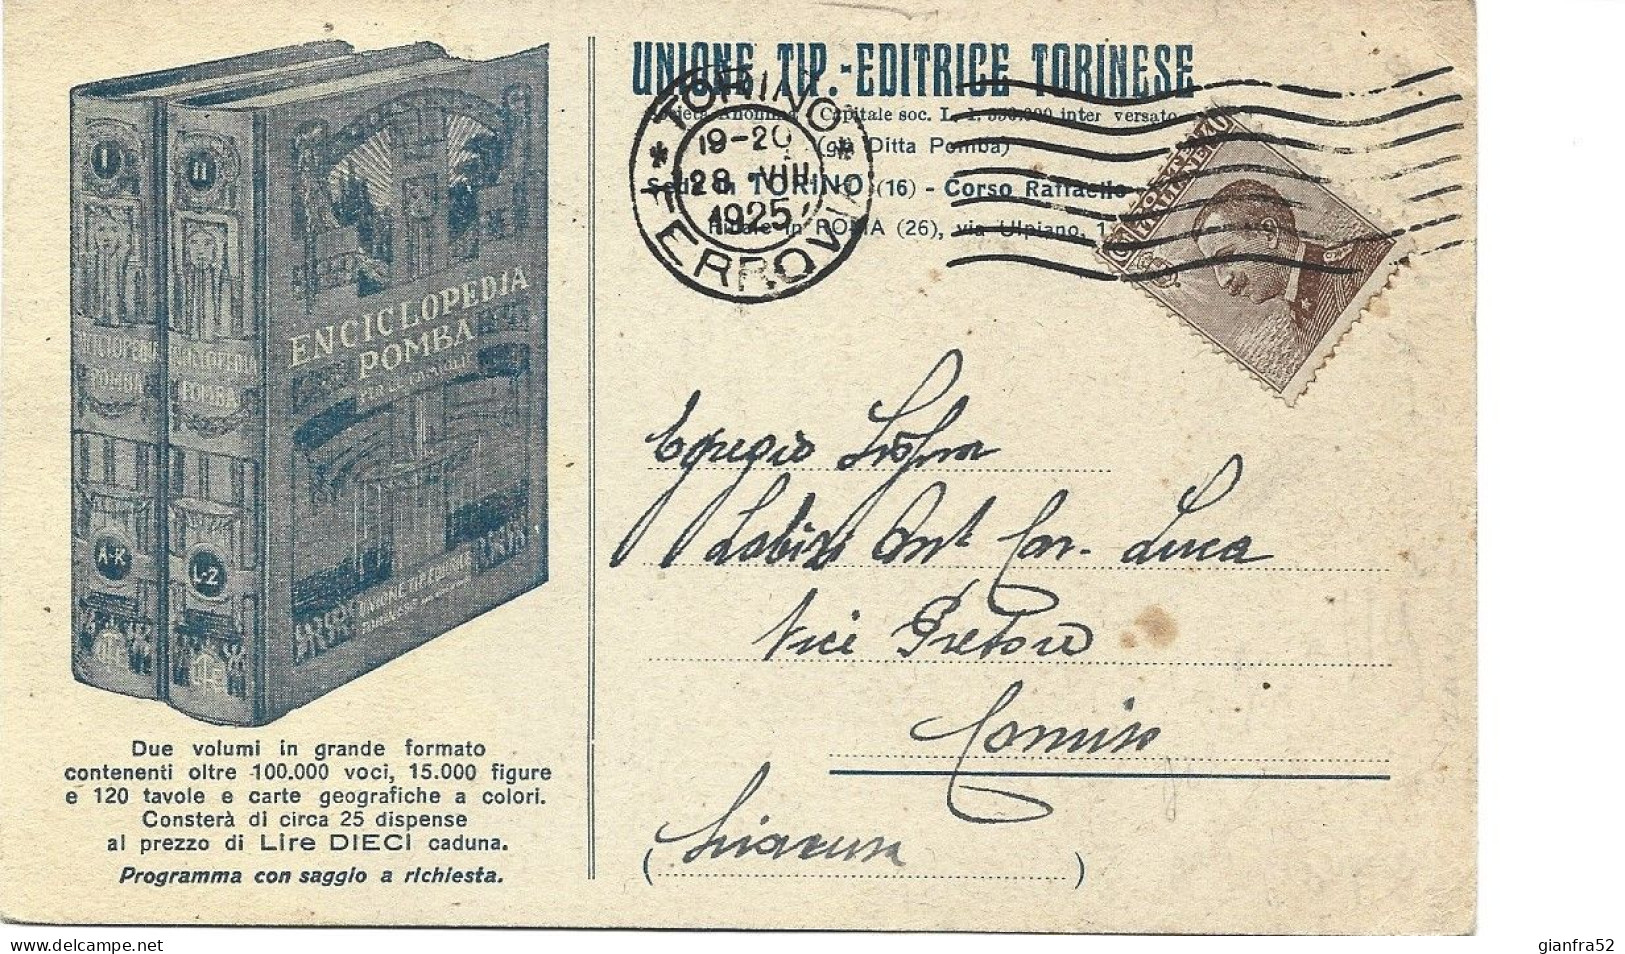 I
II
ENCICLOPEDIA
POMBA
PER LE FAMIGLIE
ENCICLOPEDIA
POMBA
ENCICLOPEDIA
POMBA
A-K
L-Z
UNIONE TIP. EDITRICE
TORINESE
Due volumi in grande formato
contenenti oltre 100.000 voci, 15.000 figure
e 120 tavole e carte geografiche a colori.
Consterà di circa 25 dispense
al prezzo di Lire DIECI caduna.
Programma con saggio a richiesta.
UNIONE TIP.-EDITRICE TORINESE
Società Anonima Capitale soc. L. inter versato
(già Ditta Pomba)
Sede in TORINO (16) - Corso Raffaello
Filiale in ROMA (26), via Ulpiano, 1
TORINO
19-20
28 VIII
1925
FERROVIA
Egregio
Ant Cav. Luca
Vice Pretore
Comiso
(Siracusa)
delcampe.net
gianfra52